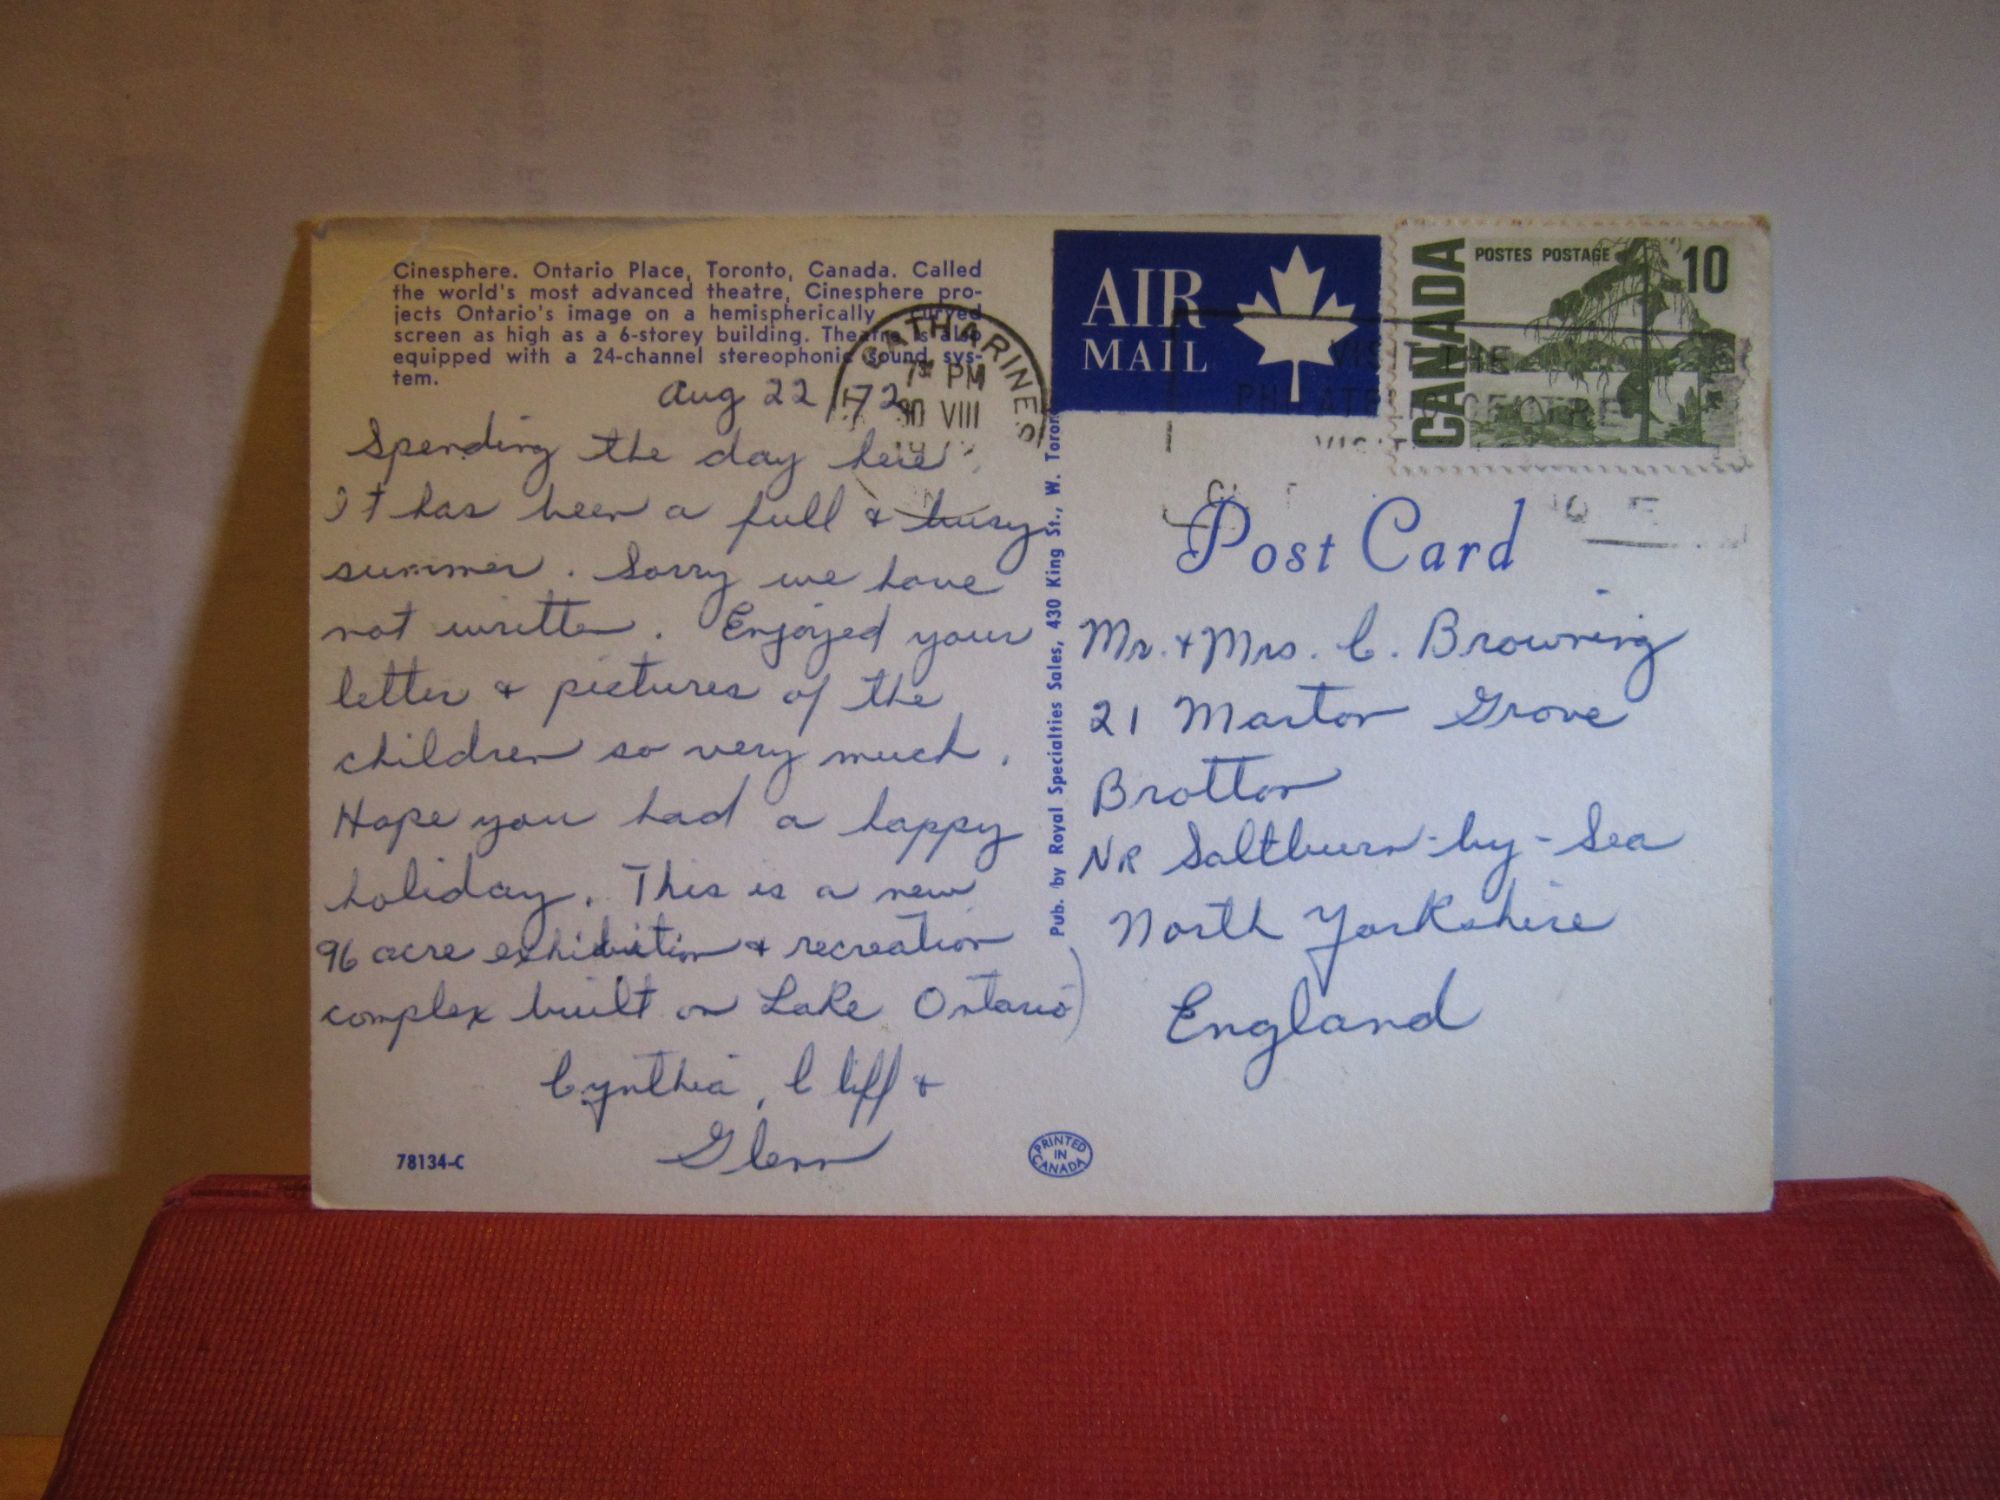 Cinesphere. Ontario Place, Toronto, Canada. Called
the world's most advanced theatre, Cinesphere pro-
jects Ontario's image on a hemispherically curved
screen as high as a 6-storey building. Theatre is also
equipped with a 24-channel stereophonic sound sys-
tem.
Aug 22 / 72
Spending the day here.
It has been a full & busy
summer. Sorry we have
not written. Enjoyed your
letter & pictures of the
children so very much.
Hope you had a happy
holiday. This is a new
96 acre exhibition & recreation
complex built on Lake Ontario)
Cynthia, Cliff &
Glenn
78134-C
CATHARINES
PM
VIII
Pub. by Royal Specialties Sales, 430 King St., W. Toron
PRINTED
IN
CANADA
AIR
MAIL
CANADA
POSTES POSTAGE
10
VISIT THE
PHILATELIC CENTRE
VISIT
Post Card
Mr. & Mrs. C. Browning
21 Marton Grove
Brotton
NR Saltburn-by-Sea
North Yorkshire
England